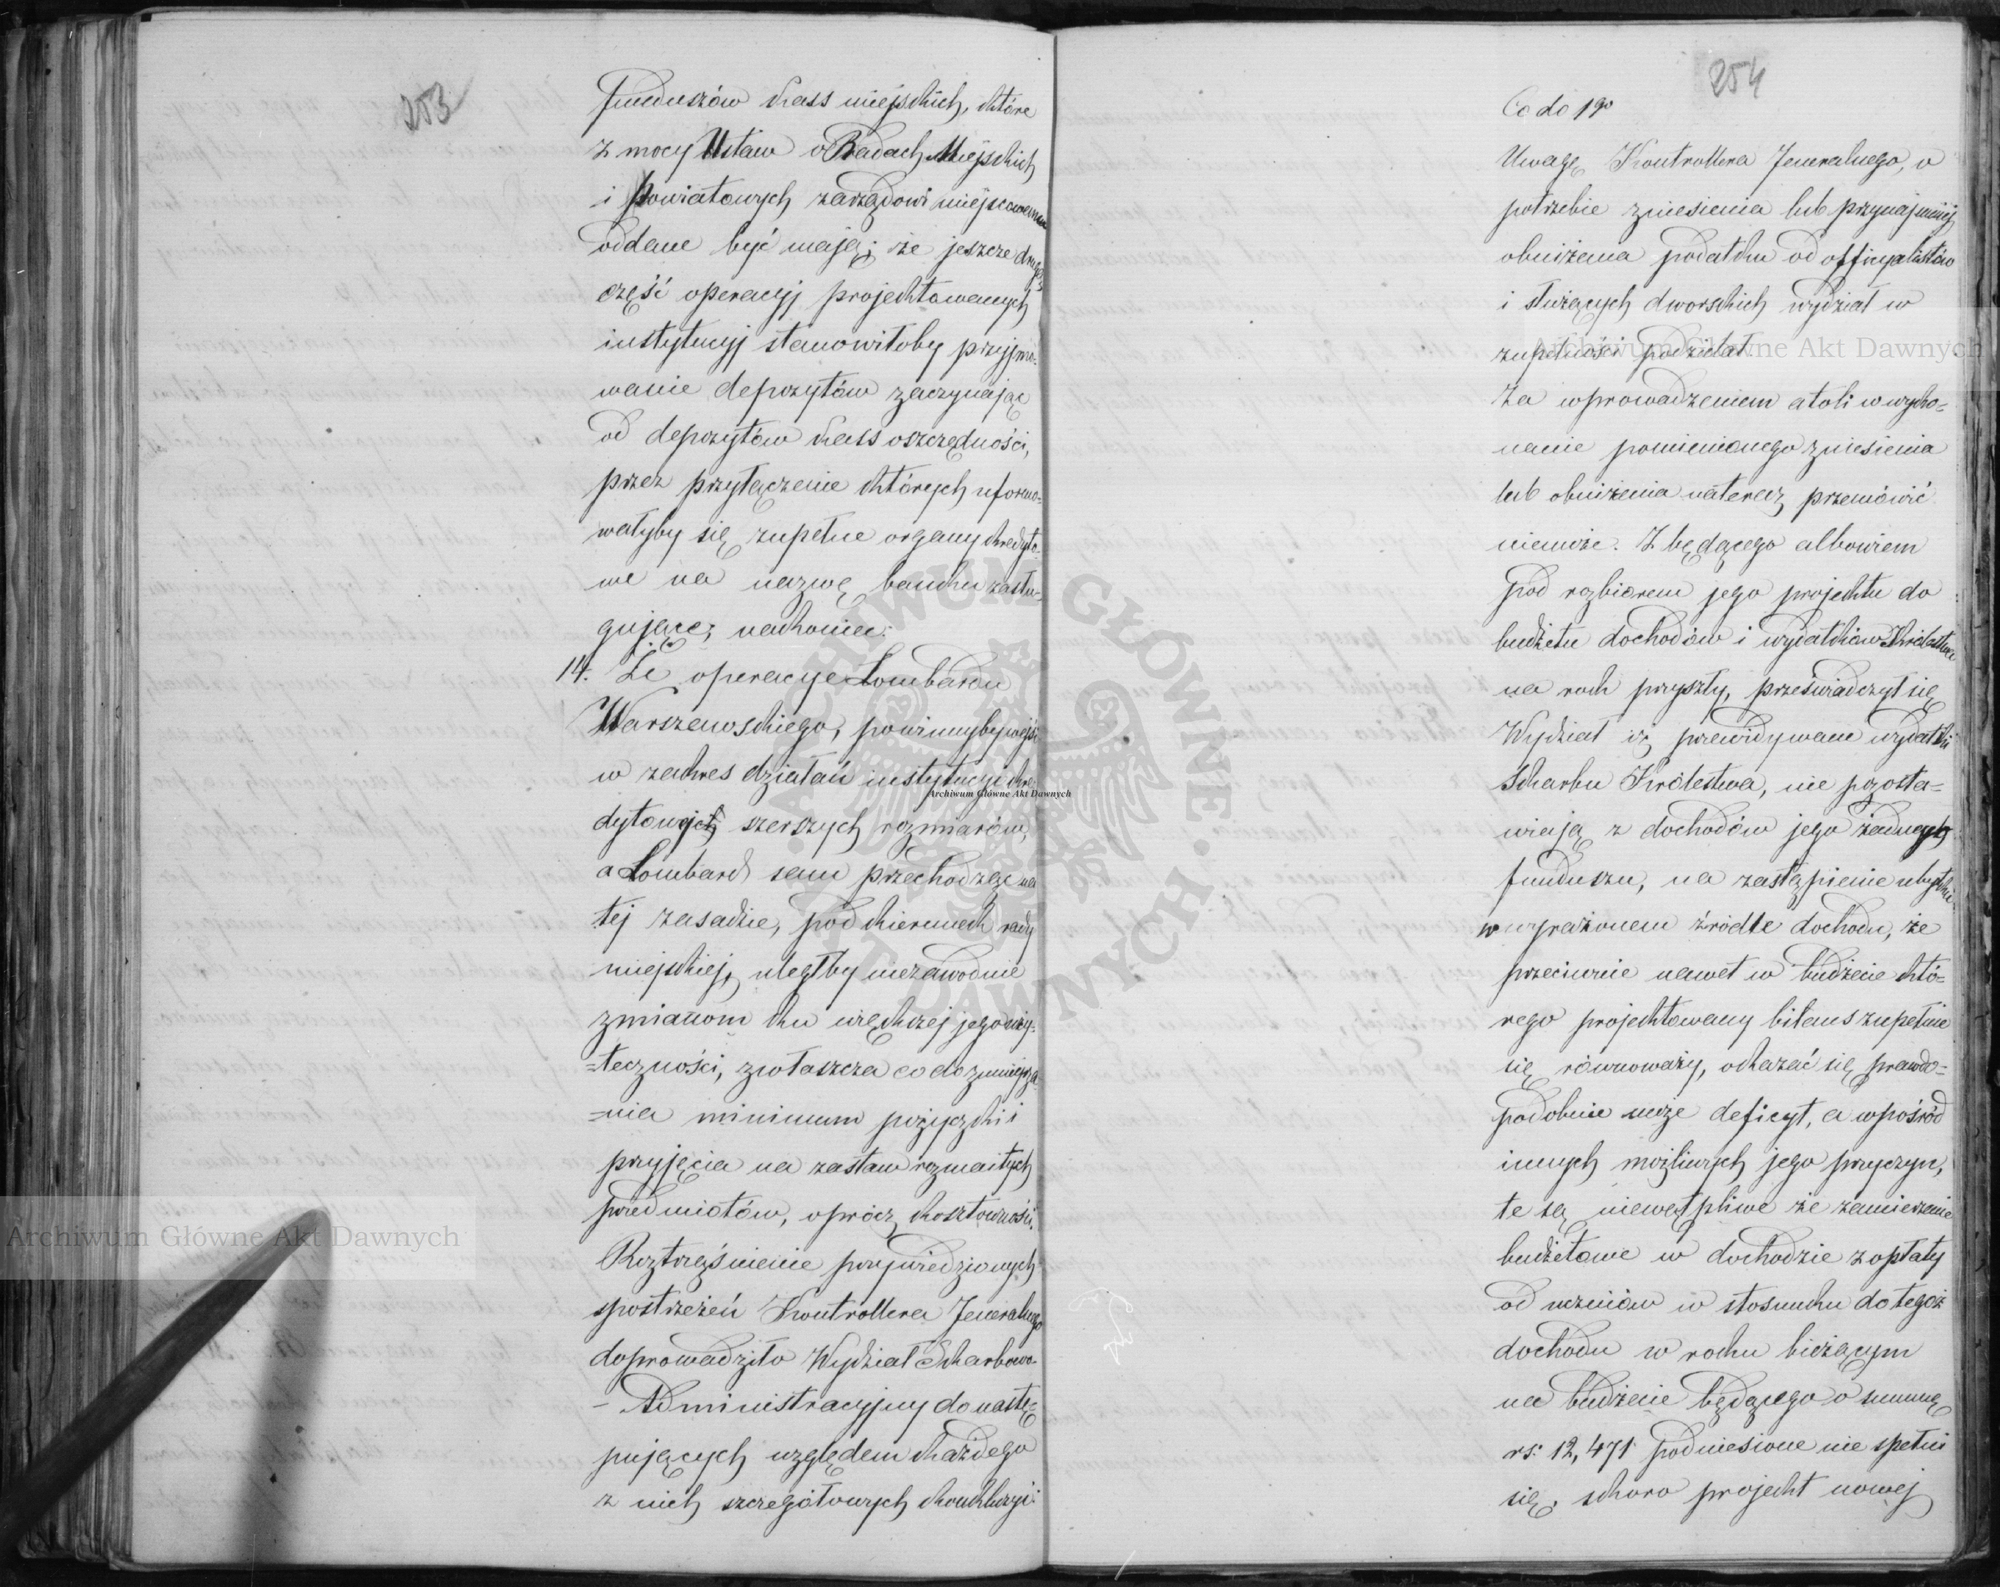 253
funduszów kass miejskich, które
z mocy Ustaw o Radach Miejskich
i Powiatowych zarządowi miejscowemu
oddane być mają; że jeszcze drugą
część operacyj projektowanych
instytucyj stanowiłoby przyjmo-
wanie depozytów zaczynając
od depozytów kass oszczędności,
przez przyłączenie których uformo-
wałyby się zupełne organy kredyto-
we na nazwę banku zasłu-
gujące; nakoniec:
14. Że operacye Lombardu
Warszawskiego, powinnyby wejść
w zakres działań instytucyi kre-
dytowych szerszych rozmiarów,
a Lombard sam przechodząc na
tej zasadzie, pod kierunek rady
miejskiej, uległby niezawodnie
zmianom ku większej jego uży-
-teczności, zwłaszcza co do zmniejsza-
-nia minimum pożyczki i
przyjęcia na zastaw rozmaitych
przedmiotów, oprócz kosztowności.
Roztrząśnienie przywiedzionych
spostrzeżeń Kontrollera Jeneralnego
doprowadziło Wydział Skarbowo-
- Administracyjny do nastę-
pujących względem każdego
z nich szczegółowych konkluzyi:
254
Co do 1go
Uwagę Kontrollera Jeneralnego, o
potrzebie zniesienia lub przynajmniej
obniżenia podatku od officyalistów
i służących dworskich wydział w
zupełności podzielał.
Za wprowadzeniem atoli w wyko-
nanie pomienionego zniesienia
lub obniżenia na teraz, przemówić
niemoże. Z będącego albowiem
pod rozbiorem jego projektu do
budżetu dochodów i wydatków Królestwa
na rok przyszły, przeświadczył się
Wydział iż przewidywane wydatki
Skarbu Królestwa, nie pozosta-
wiają z dochodów jego żadnych
funduszu, na zastąpienie ubytku
w wyrażonem źródle dochodu, że
przeciwnie nawet w budżecie któ-
rego projektowany bilans zupełnie
się równoważy, okazać się prawdo-
podobnie może deficyt, a wpośród
innych możliwych jego przyczyn,
te są niewątpliwe że zamierzenie
budżetowe w dochodzie z opłaty
od uczniów w stosunku do tegoż
dochodu w roku bieżącym
na budżecie będącego o summę
rs: 12,471 podniesione nie spełni
się, skoro projekt nowej
Archiwum Główne Akt Dawnych
Archiwum Główne Akt Dawnych
Archiwum Główne Akt Dawnych
ARCHIWUM GŁÓWNE AKT DAWNYCH